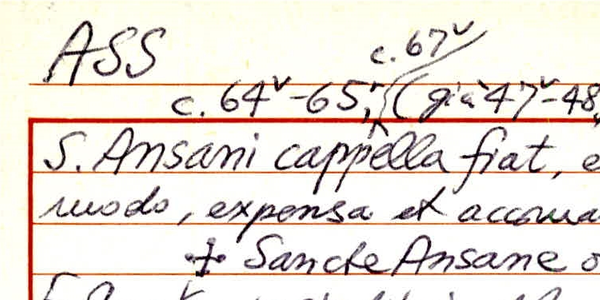 ASS
c. 67v
c. 64v-65r, (già 47v-48
S. Ansani cappella fiat, e
modo, expensa et accoma
✝ Sancte Ansane o